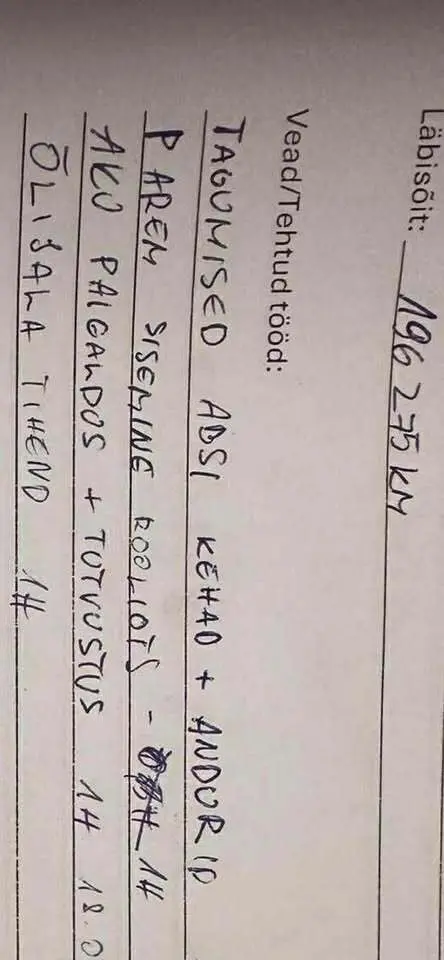 Läbisõit: 196 275 KM
Vead/Tehtud tööd:
TAGUMISED ABSI KEHAD + ANDURID
PAREM SISEMINE ROOLIOTS - 1H
AKU PAIGALDUS + TUTVUSTUS 1H 18.0
ÕLISALA TIHEND 1H